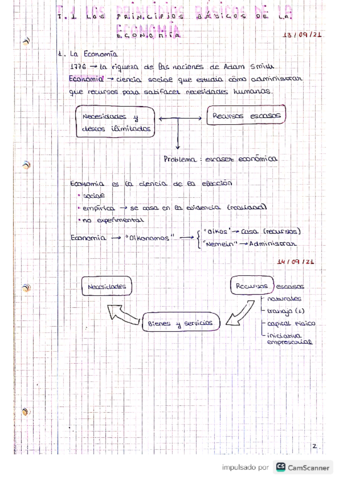 T.1 LOS PRINCIPIOS BÁSICOS DE LA
ECONOMÍA
13/09/21
1. La Economía
1776 → la riqueza de las naciones de Adam Smith
Economía → ciencia social que estudia cómo administrar
que recursos para satisfacer necesidades humanas.
Necesidades y
deseos ilimitados
Recursos escasos
Problema: escasez económica
Economía es la ciencia de la elección
• social
• empírica → se basa en la evidencia (realidad)
• no experimental
Economía → "Oikonomos" →
"Oikos" → Casa (recursos)
"Nemein" → Administrar
14/09/21
Necesidades
Recursos escasos
naturales
trabajo (L)
capital físico
iniciativa
empresarial
Bienes y servicios
2
impulsado por CS CamScanner